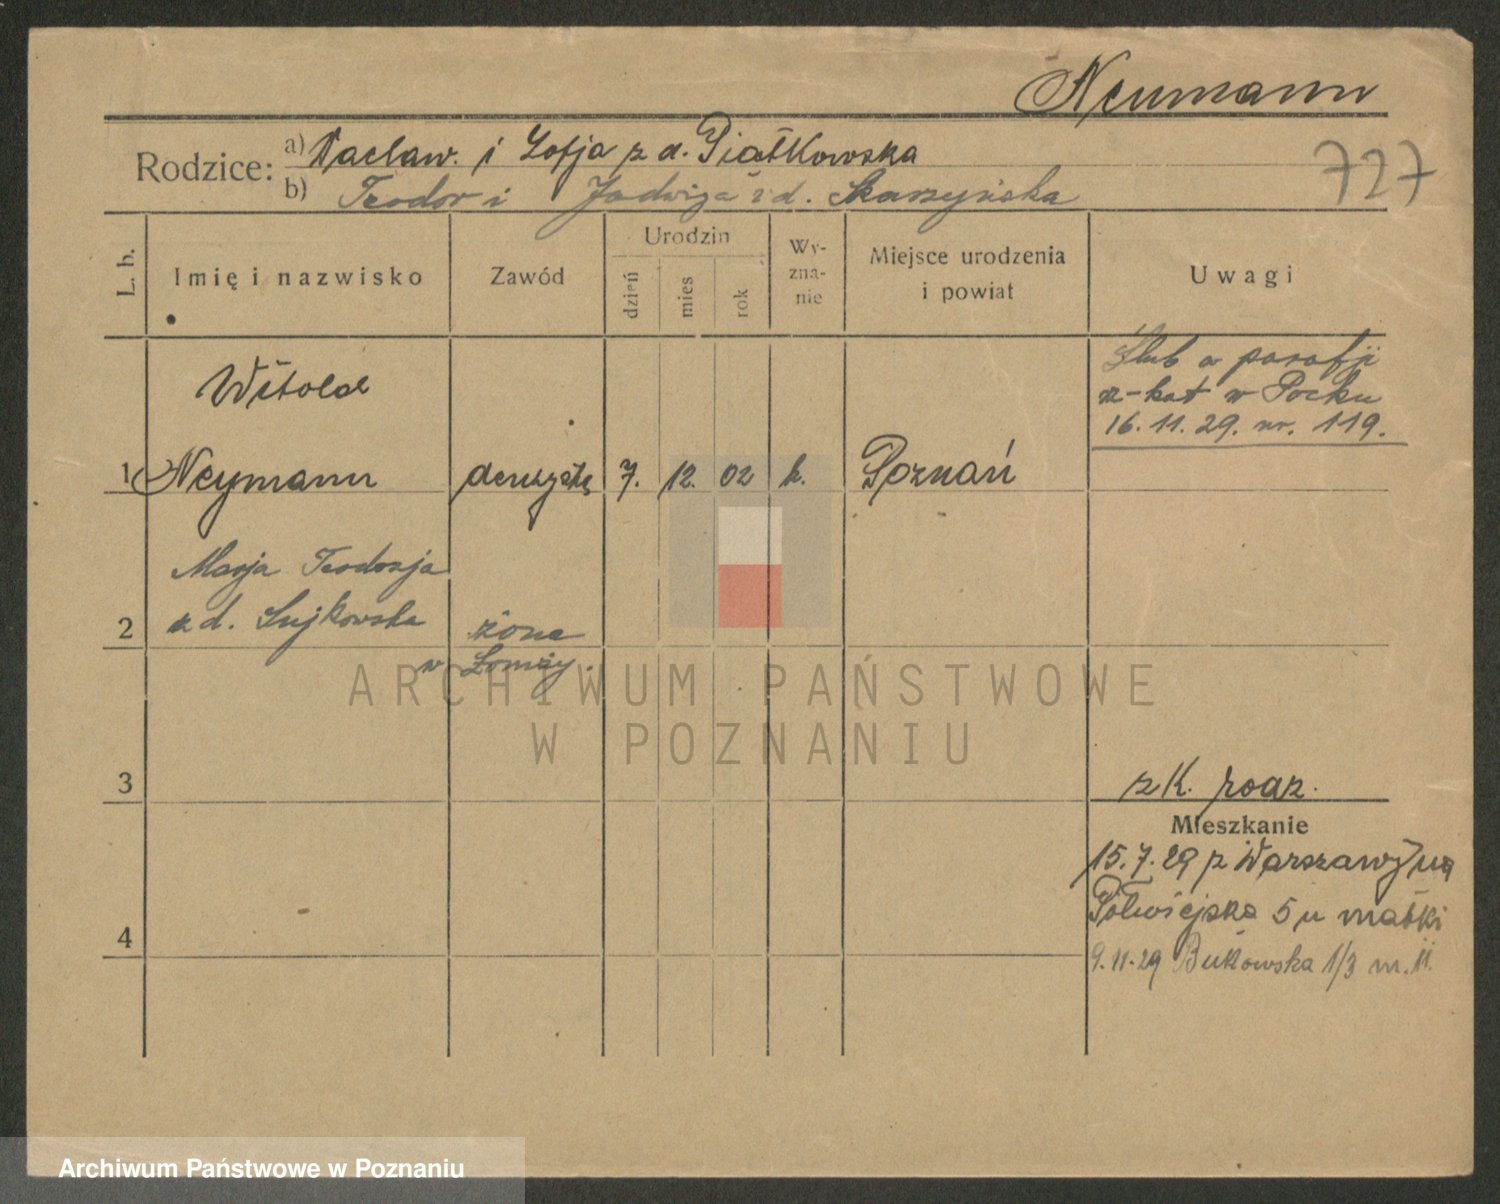 Neumann
727
Rodzice: a) Wacław. i Zofja z d. Piatkowska
b) Teodor i Jadwiga z d. Skarzyńska
L. b.
Imię i nazwisko
Zawód
Urodzin
dzień
mies
rok
Wy-
zna-
nie
Miejsce urodzenia
i powiat
Uwagi
Ślub w parafji
rz-kat w Płocku
16.11.29. nr. 119.
Witold
1 Neymann dentysta 7. 12. 02 k. Poznań
Marja Teodozja
2 z d. Sujkowska żona
w Łomży.
3
zk. roaz.
Mieszkanie
15.7.29 z Warszawy na
Półwiejska 5 u matki
4
9.11.29 Bukowska 1/3 m. 11.
ARCHIWUM PAŃSTWOWE
W POZNANIU
Archiwum Państwowe w Poznaniu